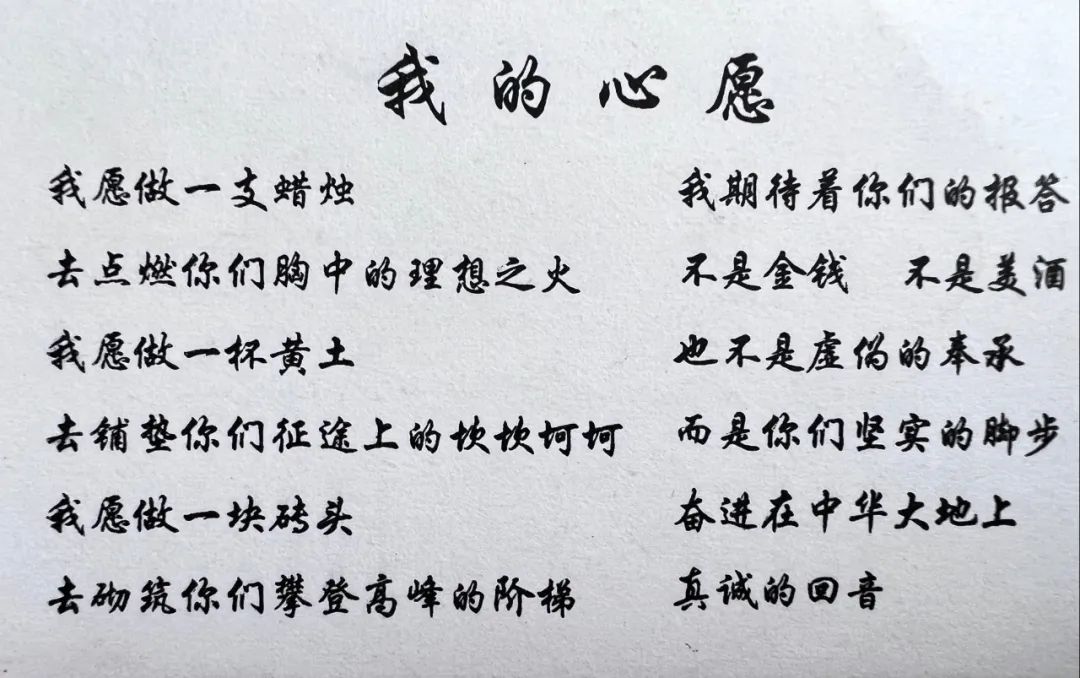 我的心愿
我愿做一支蜡烛
去点燃你们胸中的理想之火
我愿做一杯黄土
去铺垫你们征途上的坎坎坷坷
我愿做一块砖头
去砌筑你们攀登高峰的阶梯
我期待着你们的报答
不是金钱 不是美酒
也不是虚伪的奉承
而是你们坚实的脚步
奋进在中华大地上
真诚的回音